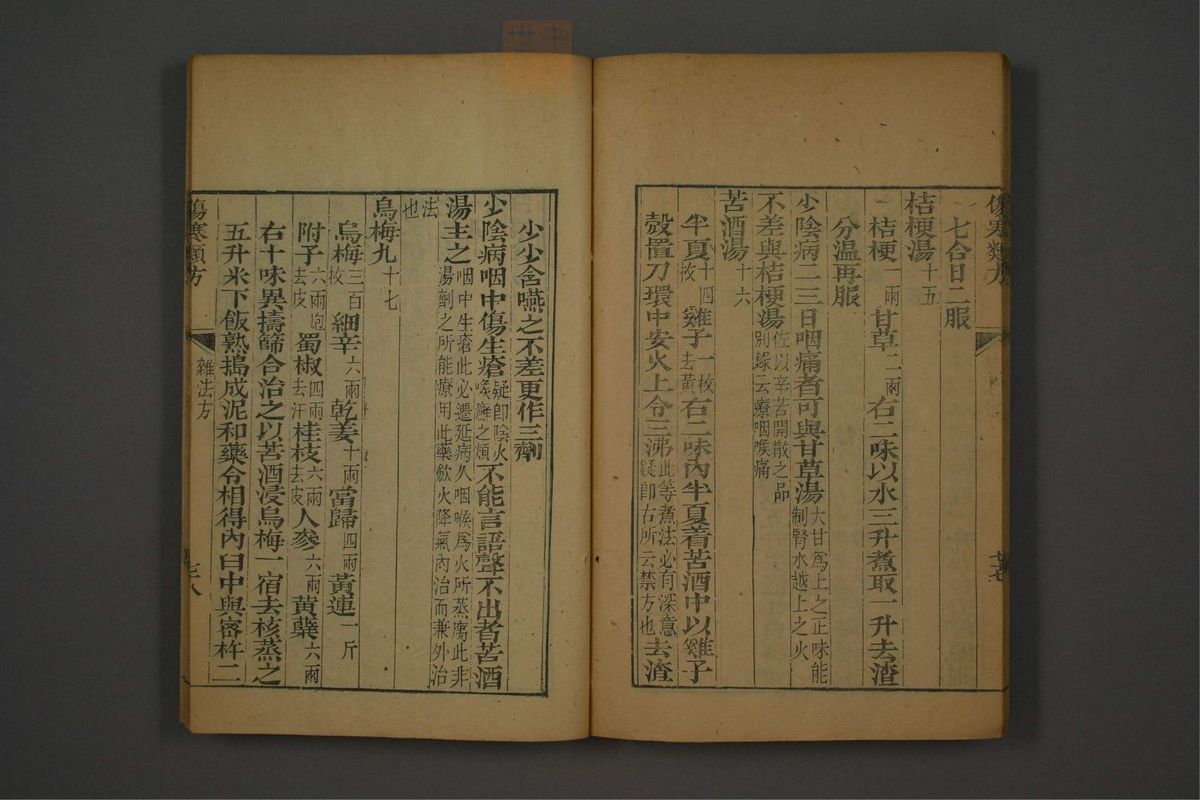 七合日二服
桔梗湯十五
桔梗一兩 甘草二兩 右二味以水三升煮取一升去渣
分温再服
少陰病二三日咽痛者可與甘草湯大甘爲上之正味能制腎水越上之火
不差與桔梗湯佐以辛苦開散之品别錄云療咽喉痛
苦酒湯十六
半夏十四枚 雞子一枚去黄 右二味內半夏着苦酒中以雞子
殼置刀環中安火上令三沸此等煮法必有深意疑卽右所云禁方也去渣
傷寒類方
少少含嚥之不差更作三劑
少陰病咽中傷生瘡疑卽陰火喉癬之類不能言語聲不出者苦酒
湯主之咽中生瘡此必遷延病久咽喉爲火所蒸腐此非湯劑之所能療用此藥斂火降氣內治而兼外治
法也
烏梅丸十七
烏梅三百枚 細辛六兩 乾姜十兩 當歸四兩 黃連一斤
附子六兩炮去皮 蜀椒四兩去汗 桂枝六兩去皮 人參六兩 黃蘗六兩
右十味異擣篩合治之以苦酒浸烏梅一宿去核蒸之
五升米下飯熟搗成泥和藥令相得內臼中與蜜杵二
傷寒類方
雜法方